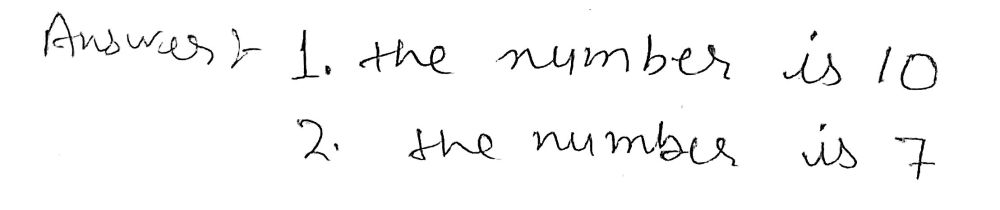 Answer :- 1. the number is 10
2. the number is 7